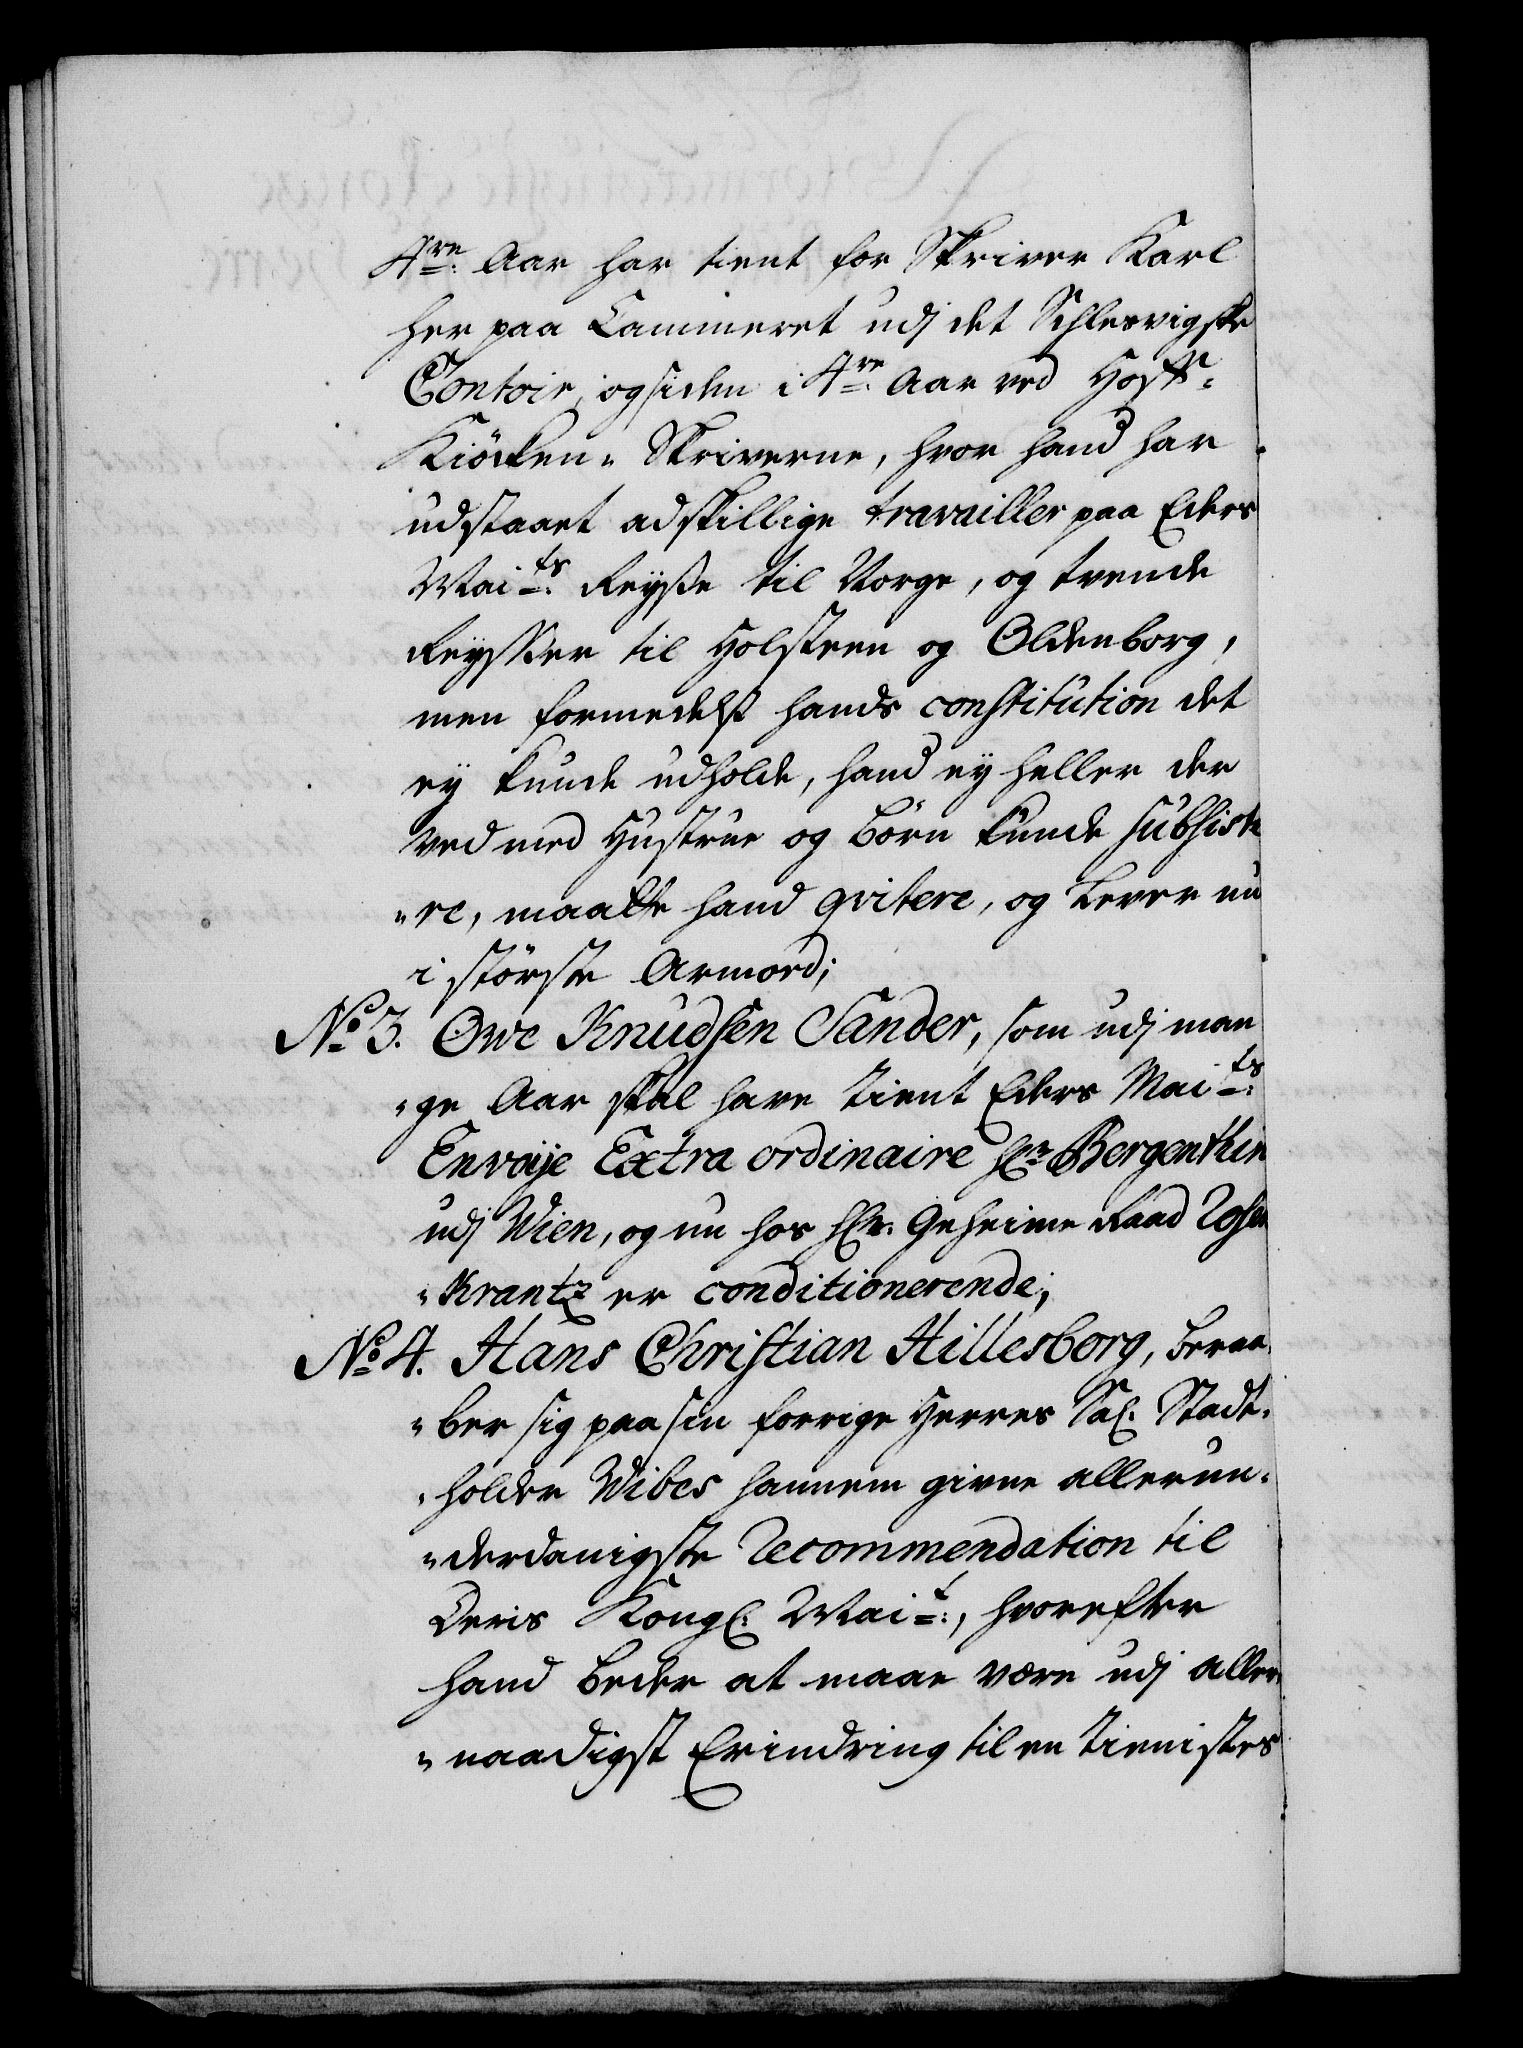 4re: Aar har tient for Skriver Karl
her paa Cammeret udj det Schlesvigske
Contoir, og siden i 4re: Aar ved Hoff-
Kiöcken- Skriverne, hvor hand har
udstaaet adskillige travailler paa Eders
Maits: Reyße til Norge, og trende
Reysßer til Holsteen og Oldenborg,
men formedelst hands constitution det
ey kunde udholde, hand ey heller der
ved med Hustrue og Börn kunde subsiste
-re, maatte hand qvitere, og lever nu
i störste Armod;
No 3. Owe Knudsen Sander, som udj man
-ge Aar skal have tient Eders Maits:
Envoÿe Extra ordinaire Hr: Bergenthin
udj Wien, og nu hos Hr. Geheime Raad Rosen
-Krantz er conditionerende;
No 4. Hans Christian Hillesborg, beraa-
-ber sig paa sin forrige Herres Sal. Stadt-
-holder Wibes hannem givne allerun-
-derdanigste Recommendation til
Deris Kongl. Mait:, hvorefter
hand beder at maae være udj aller-
-naadigst Erindring til en tienistes